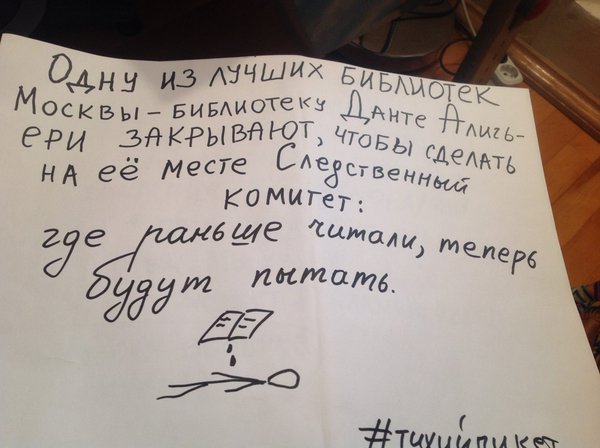 Одну из лучших библиотек
Москвы – библиотеку Данте Алигь-
ери закрывают, чтобы сделать
на её месте Следственный
комитет:
где раньше читали, теперь
будут пытать.
#тихийпикет